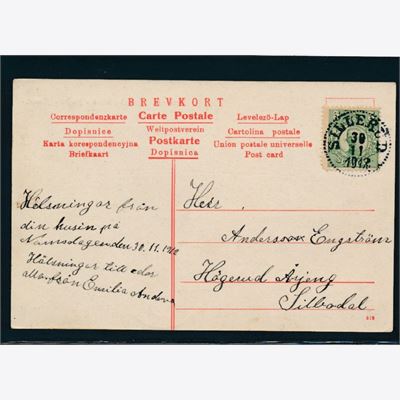 BREVKORT
Correspondenzkarte Carte Postale Levelező-Lap
Dopisnice Weltpostverein Cartolina postale
Karta korespondencyjna Postkarte Union postale universelle
Briefkaart Dopisnica Post card
SILLERUD
30
11
1912
Hälsningar från
din kusin på
Namsdagen den 30.11.1912
Hälsningar till eder
från Emilia
Herr
Andersson Engström
Högerud Årjeng
Silbodal